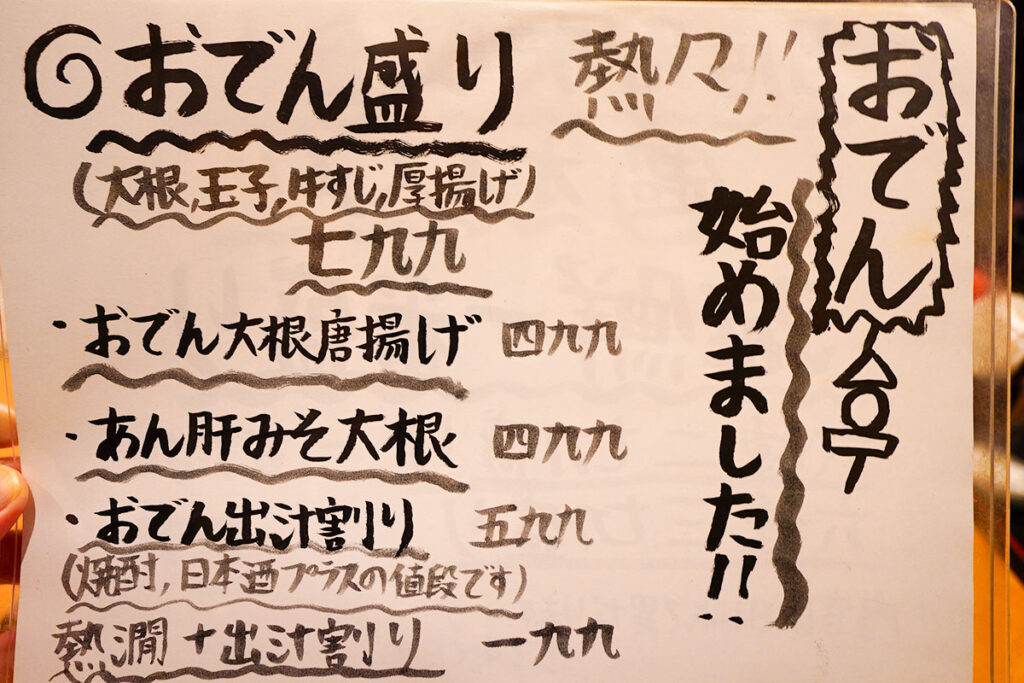 おでん
始めました!!
熱々!!
おでん盛り
(大根,玉子,牛すじ,厚揚げ)
七九九
・おでん大根唐揚げ 四九九
・あん肝みそ大根 四九九
・おでん出汁割り 五九九
(焼酎,日本酒プラスの値段です)
熱澗+出汁割り 一九九